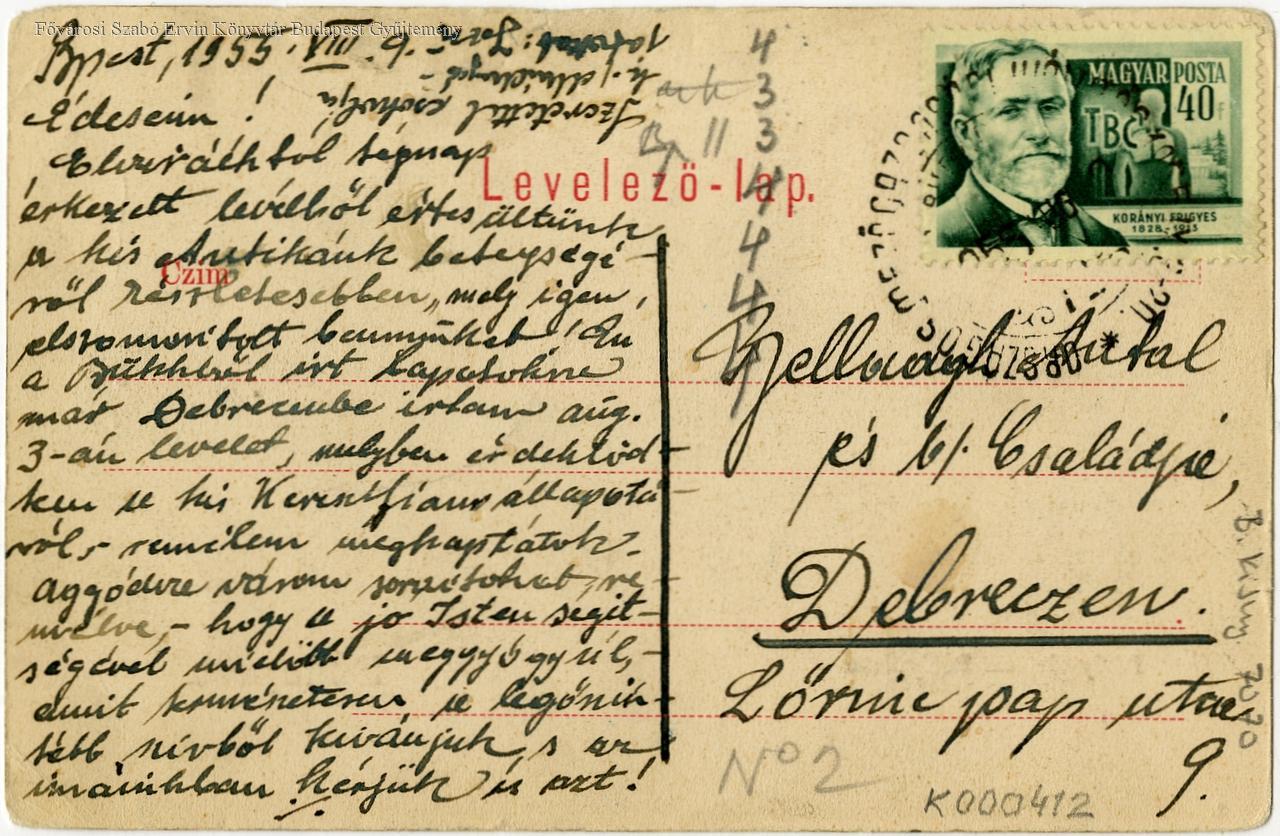 Fővárosi Szabó Ervin Könyvtár Budapest Gyűjtemény
Bpest, 1955. VIII. 6.
Édeseim!
Elvirától tegnap
érkezett levélből értesültünk
a kis Antikánk betegségé-
ről részletesebben, mely igen,
elszomorított bennünket! Én
a Bükkből írt lapotokra
már Debrecenbe írtam aug.
3-án levelet, melyben érdeklőd-
tem a kis Keresztfiam állapotá-
ról, - remélem megkaptátok.
Aggódva várom soraitokat, re-
mélve, - hogy a jó Isten segít-
ségével mielőbb meggyógyúl, -
amit természetesen a legőszin-
tébb szívből kívánjuk, s az
imáinkban kérjük is azt!
Szeretettel csókolja
Levelező-lap.
Czim
MAGYAR POSTA
40 F
TBC
KORÁNYI FRIGYES
1828-1913
4
3
3
4
4
4
4
Bp II
Bellaagh Antal
és b/. Családja,
Debreczen.
Lőrinc pap utca
9.
No 2
K000412
B. Kisny. 7070